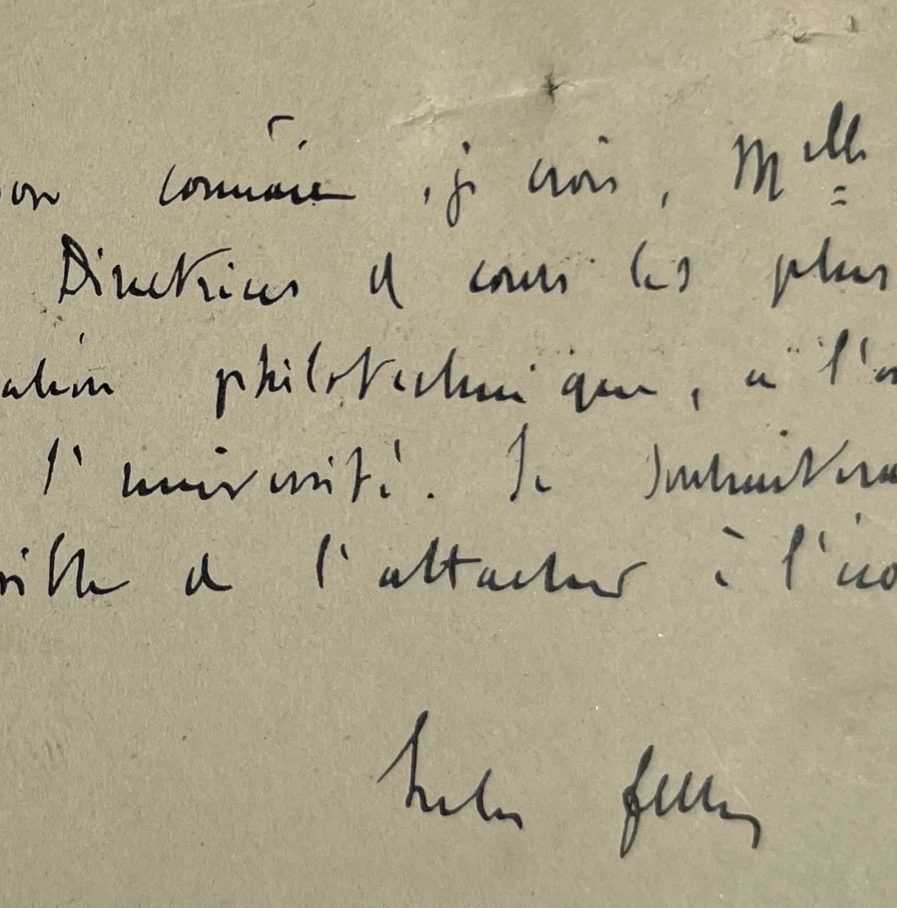 connaît, je crois, Mlle
Directrices d cours les plus
ation philotechnique, à l'
l'université. Je souhaitera
de l'attacher à l'éco
Jules Ferry